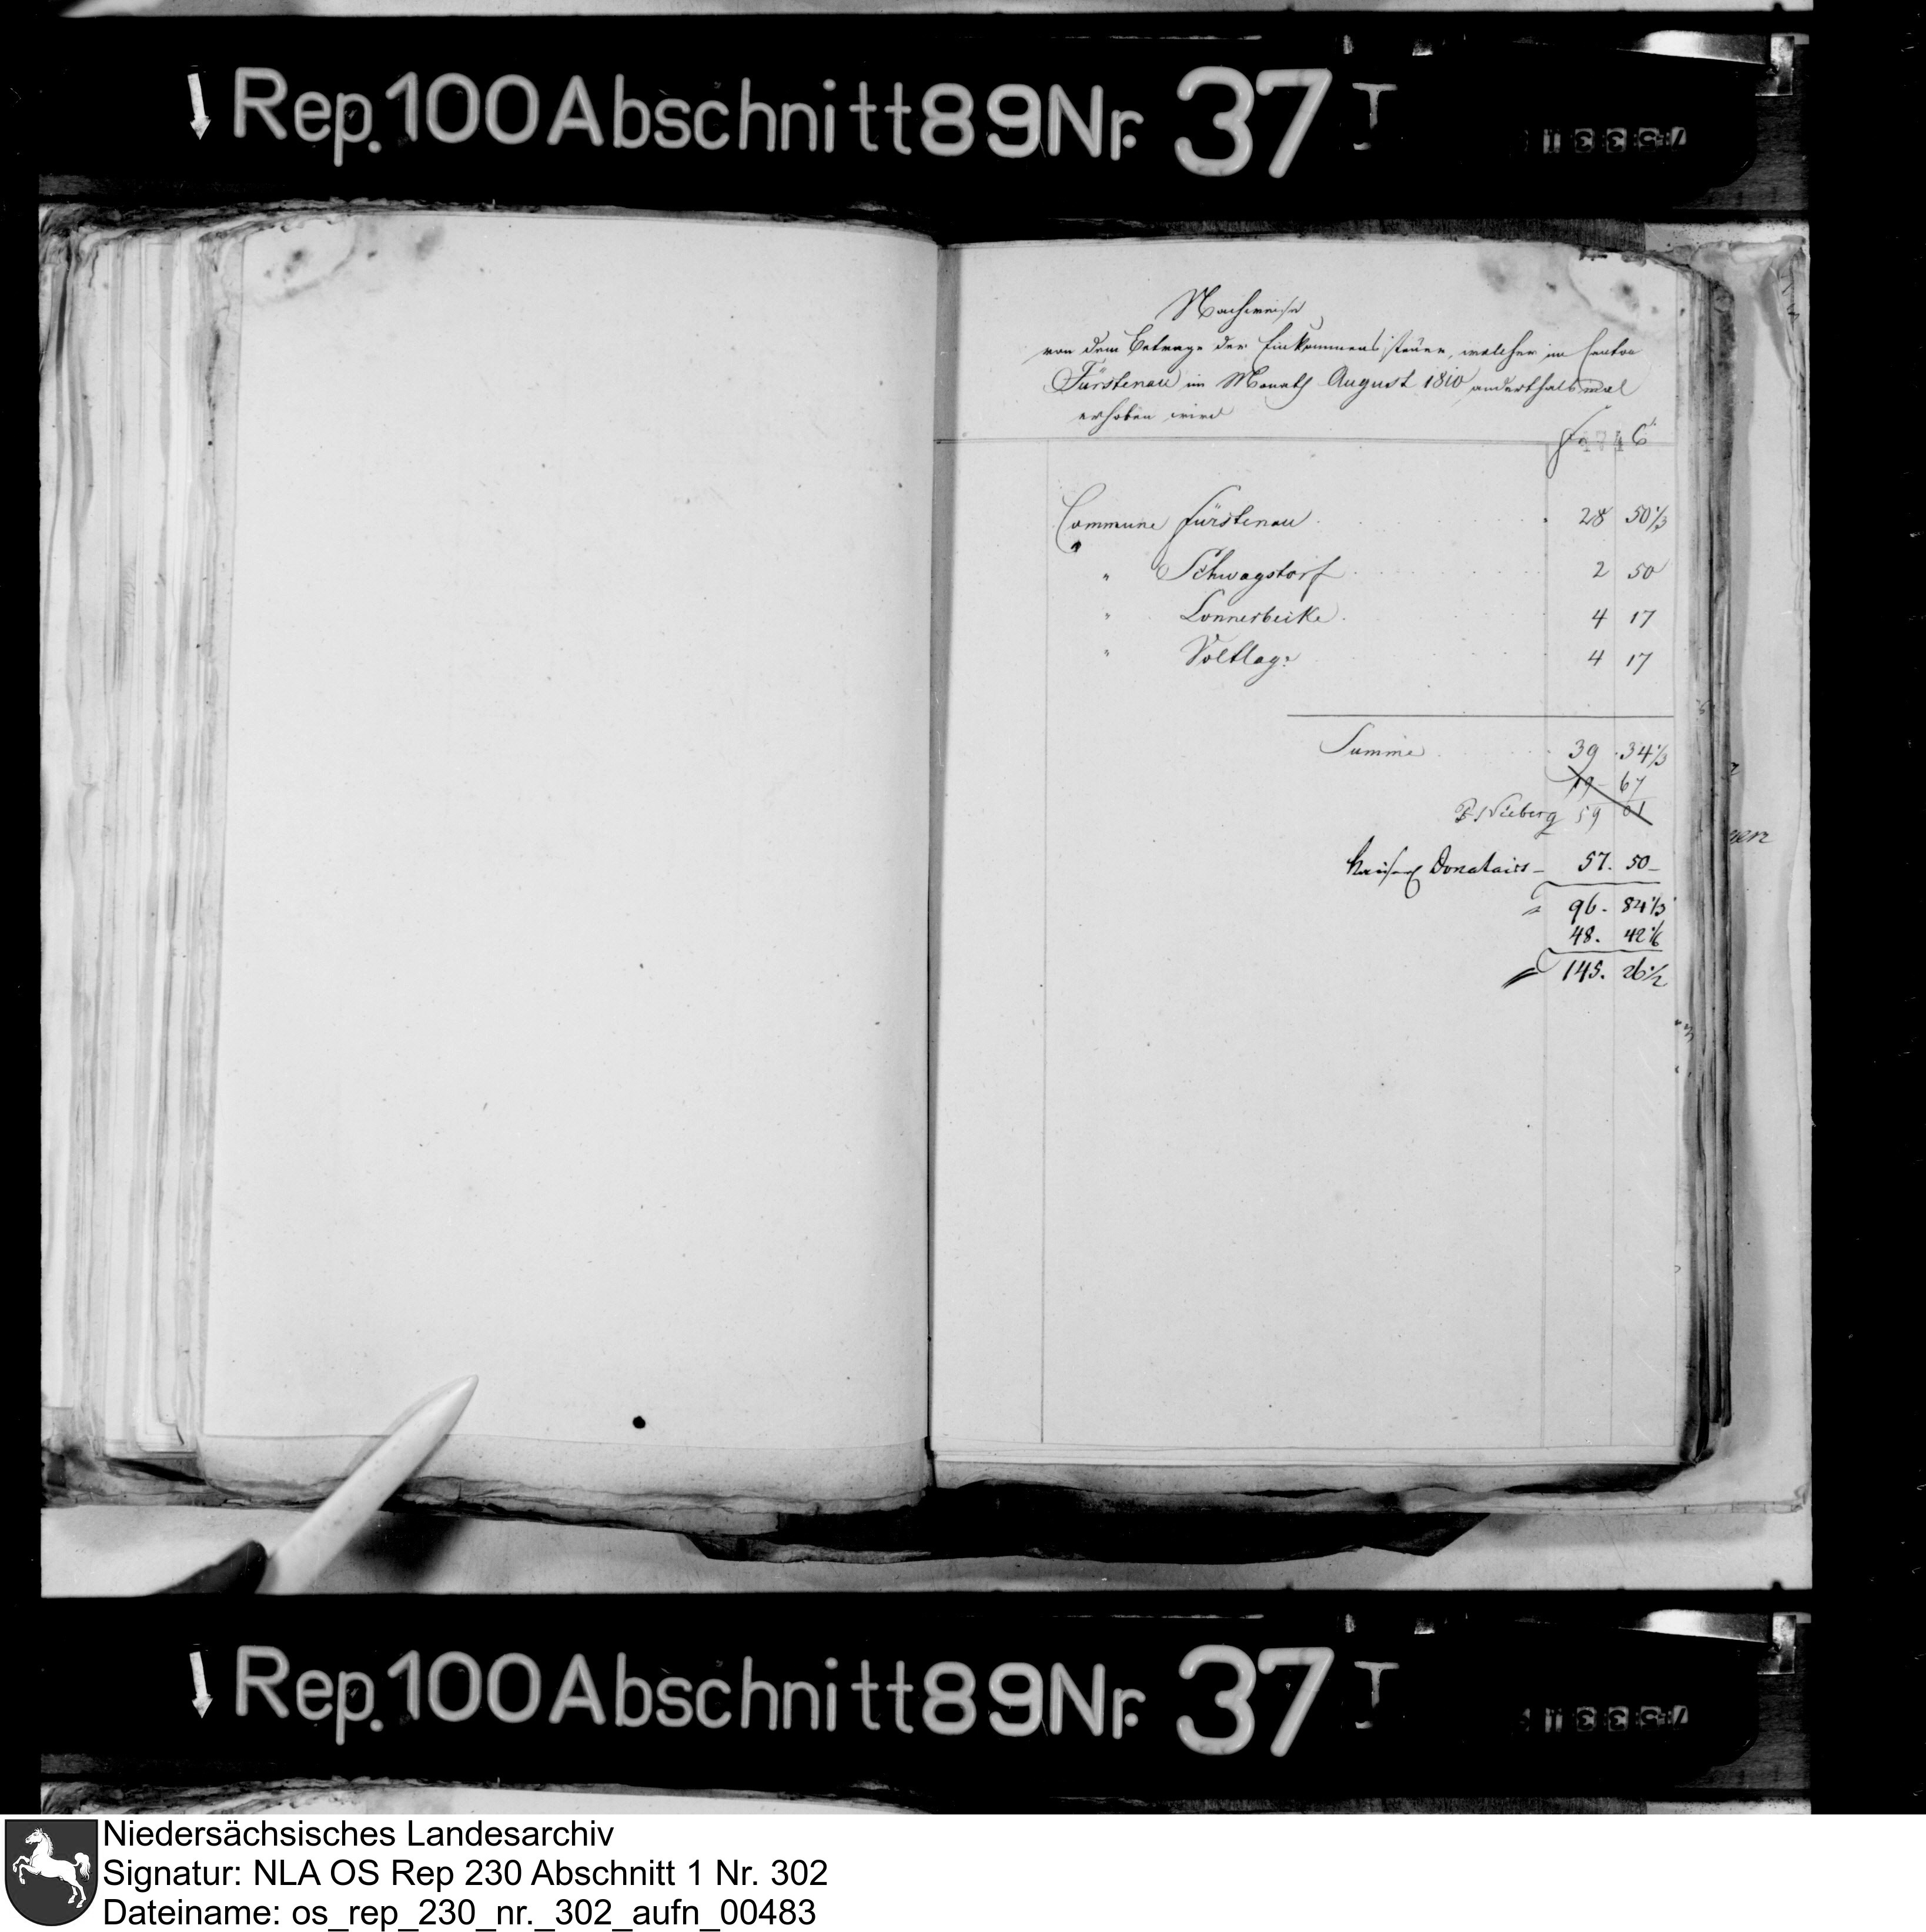 Rep. 100 Abschnitt 89 Nr. 37 I
Nachweise
von dem Betrage der Einkommenssteuer, welcher im Canton
Fürstenau im Monath August 1810 anderthalb mal
erhoben wird
fr. Cs
Commune Fürstenau . 28 50 1/3
" Schwagstorf 2 50
" Lonnerbecke 4 17
" Voltlage 4 17
Summe 39 . 34 1/3
19 - 67
Nieberg 59 01
Kaiserl Donatairs - 57. 50 -
96. 84 1/3
48. 42 1/6
145. 26 1/2
Rep. 100 Abschnitt 89 Nr. 37 I
Niedersächsisches Landesarchiv
Signatur: NLA OS Rep 230 Abschnitt 1 Nr. 302
Dateiname: os_rep_230_nr._302_aufn_00483